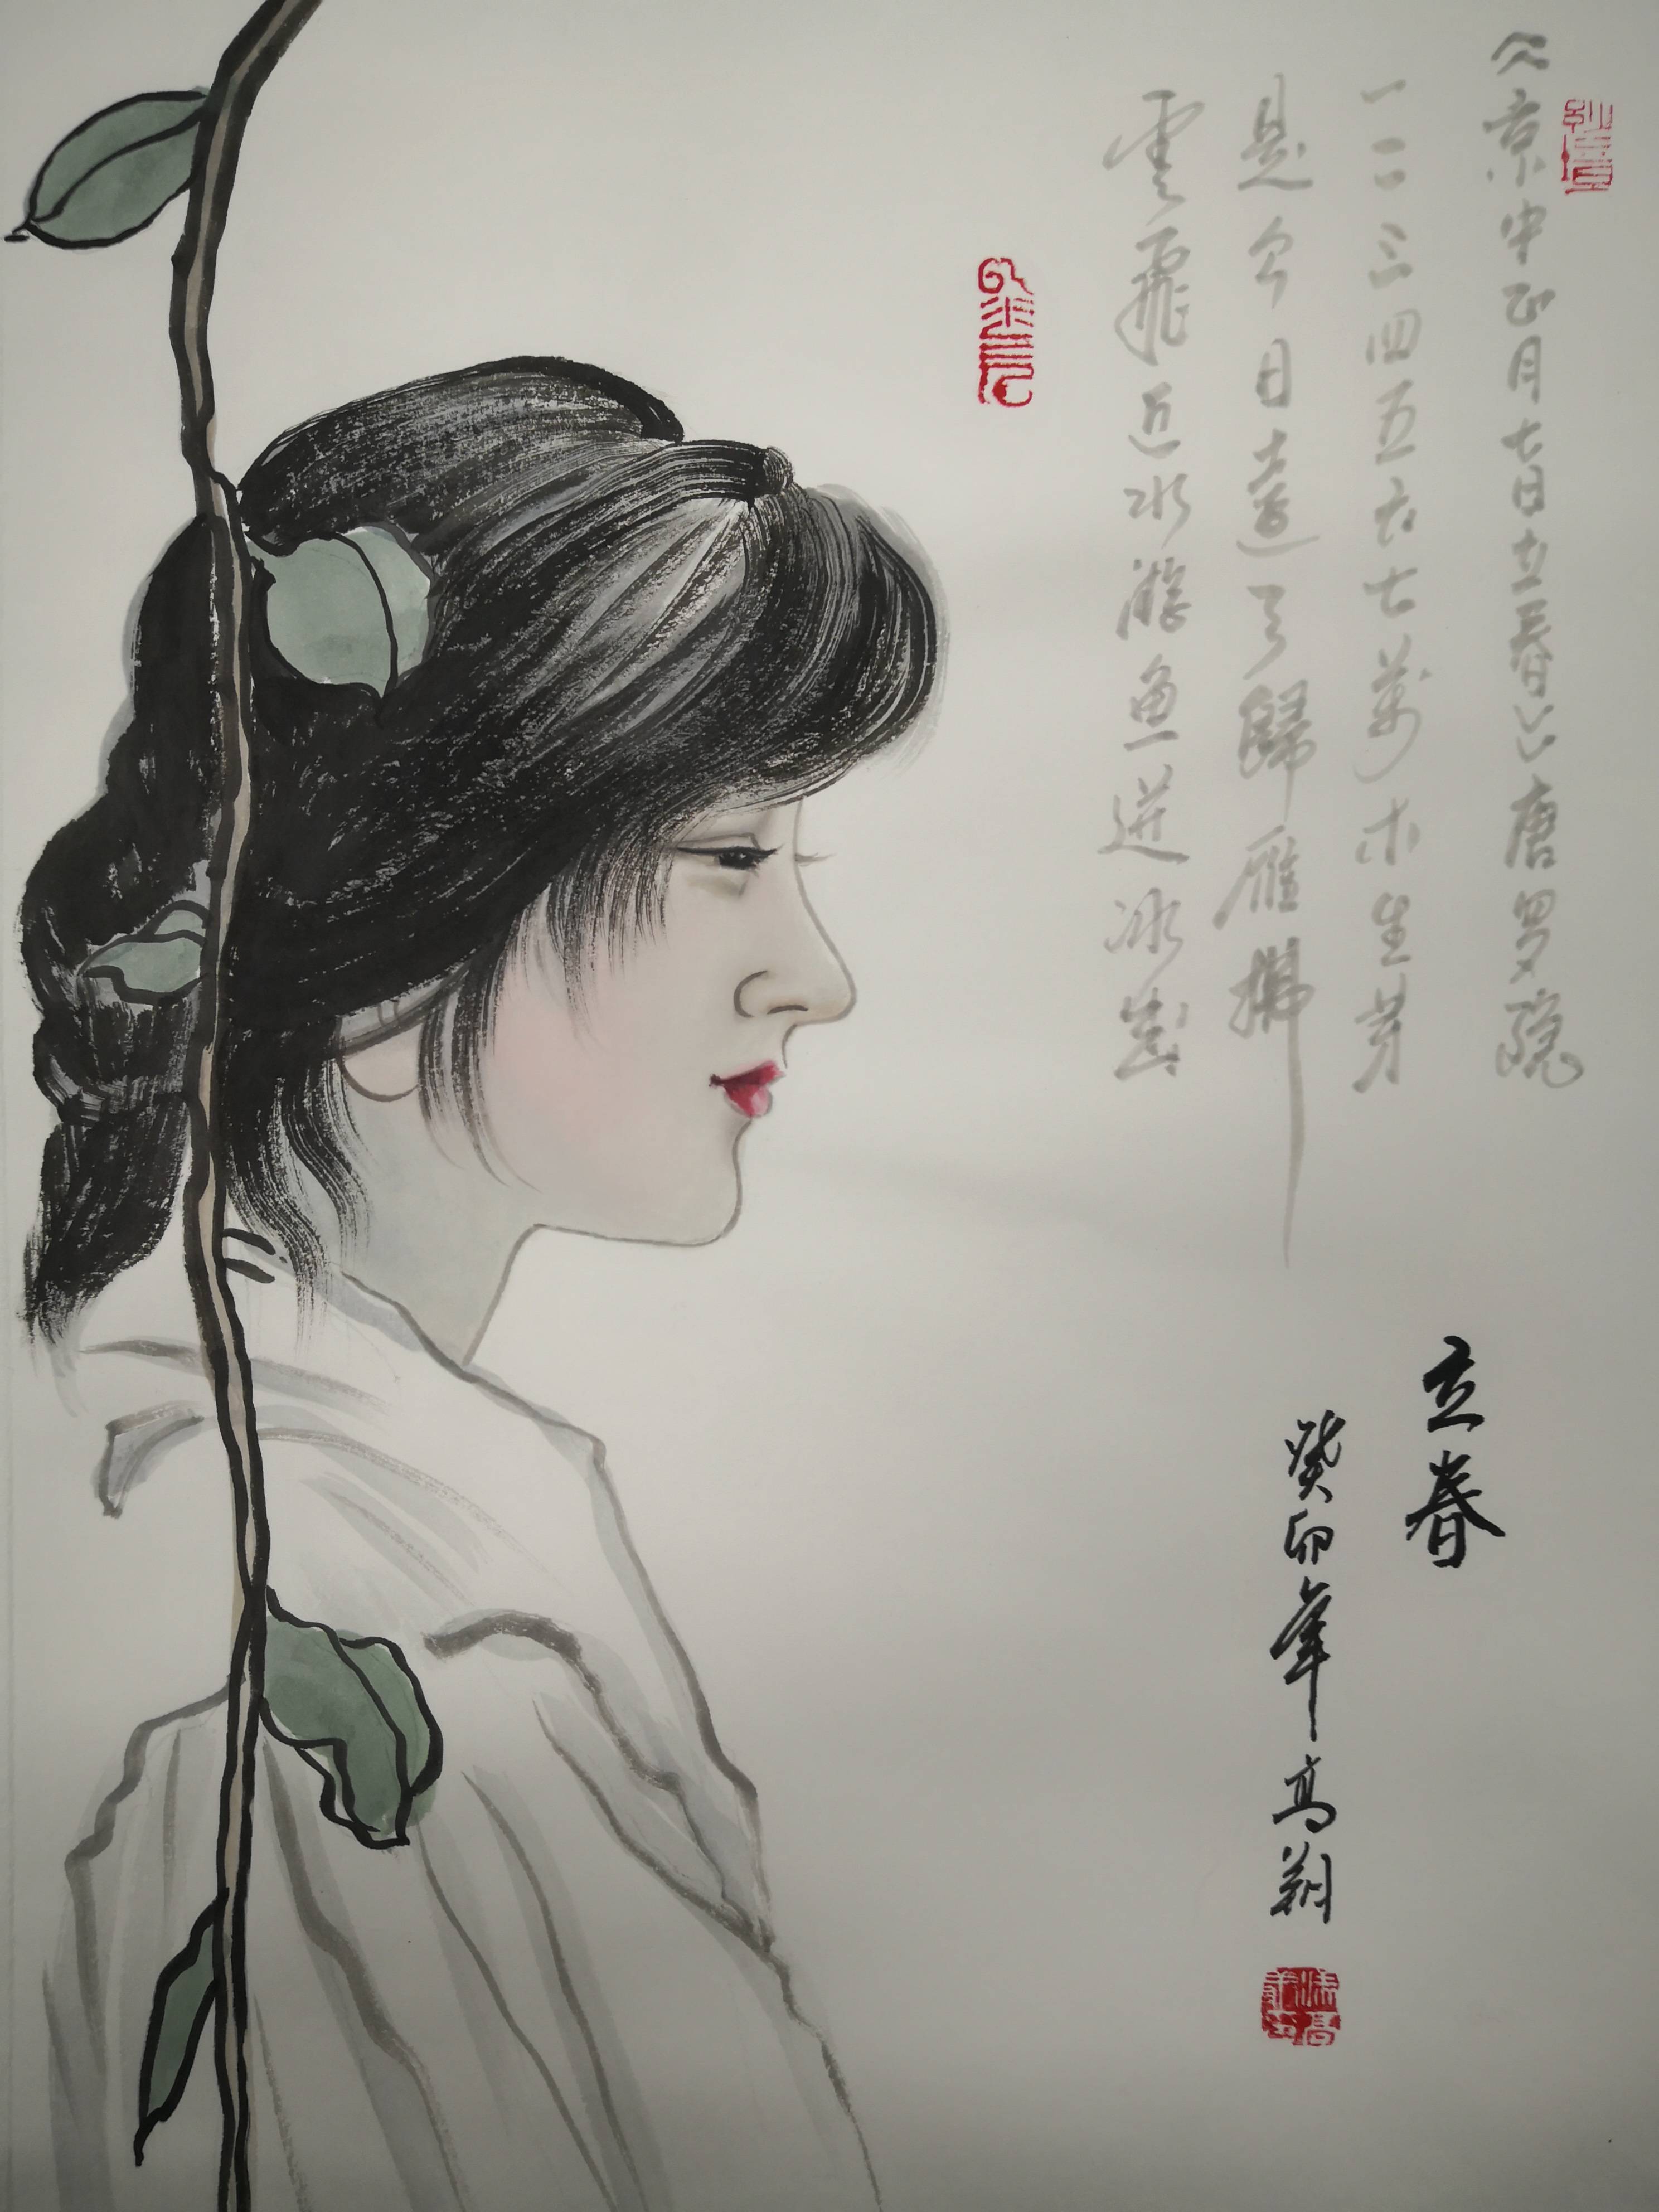 《京中正月七日立春》唐罗隐
一二三四五六七萬木生芽
是今日遠天歸雁拂
雲飛近水游魚迸冰出
立春
癸卯年高翔